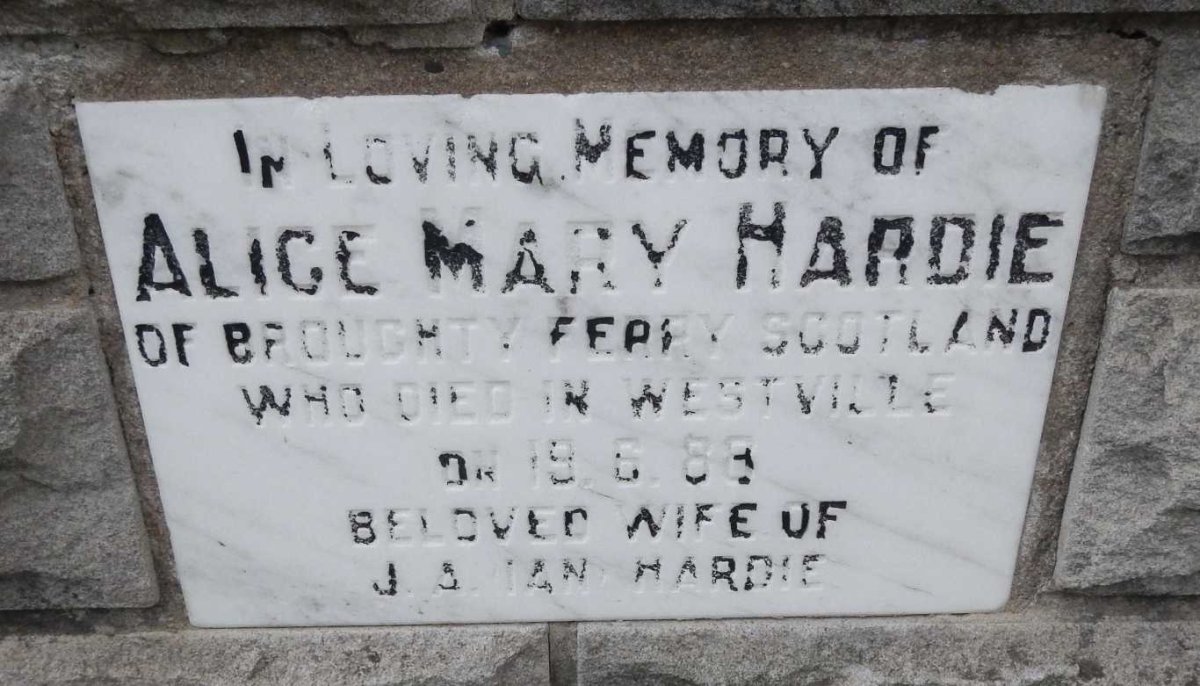 IN LOVING MEMORY OF
ALICE MARY HARDIE
OF BROUGHTY FERRY SCOTLAND
WHO DIED IN WESTVILLE
ON 19.6.88
BELOVED WIFE OF
J. A. IAN HARDIE